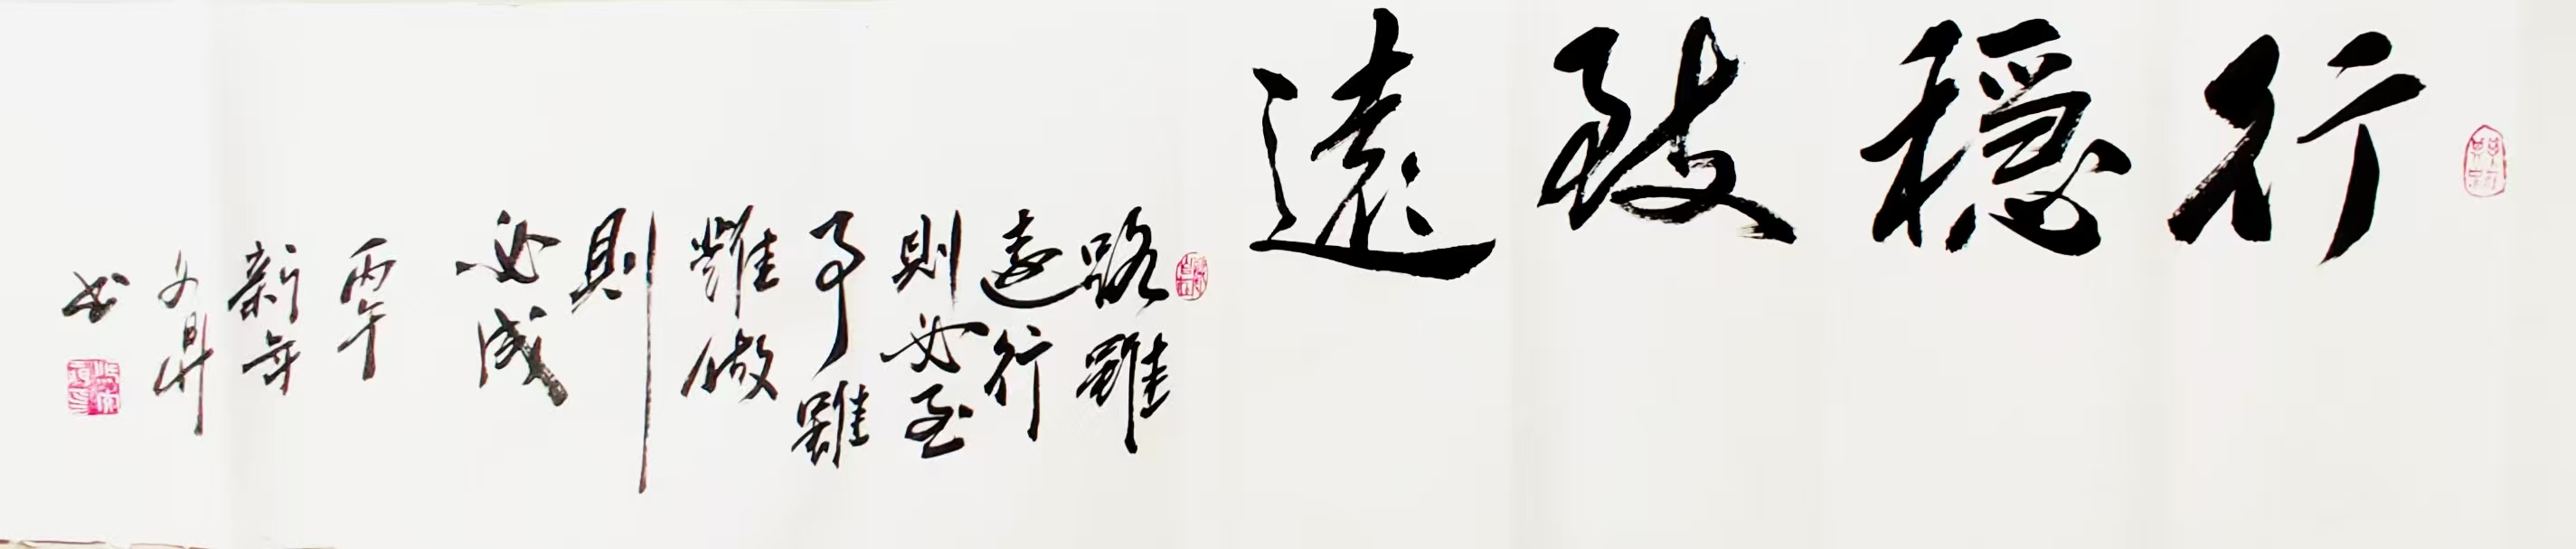 行穩致遠
路雖
遠行
則必至
事雖
難做
則
必成
丙午
新年
文鼎
书